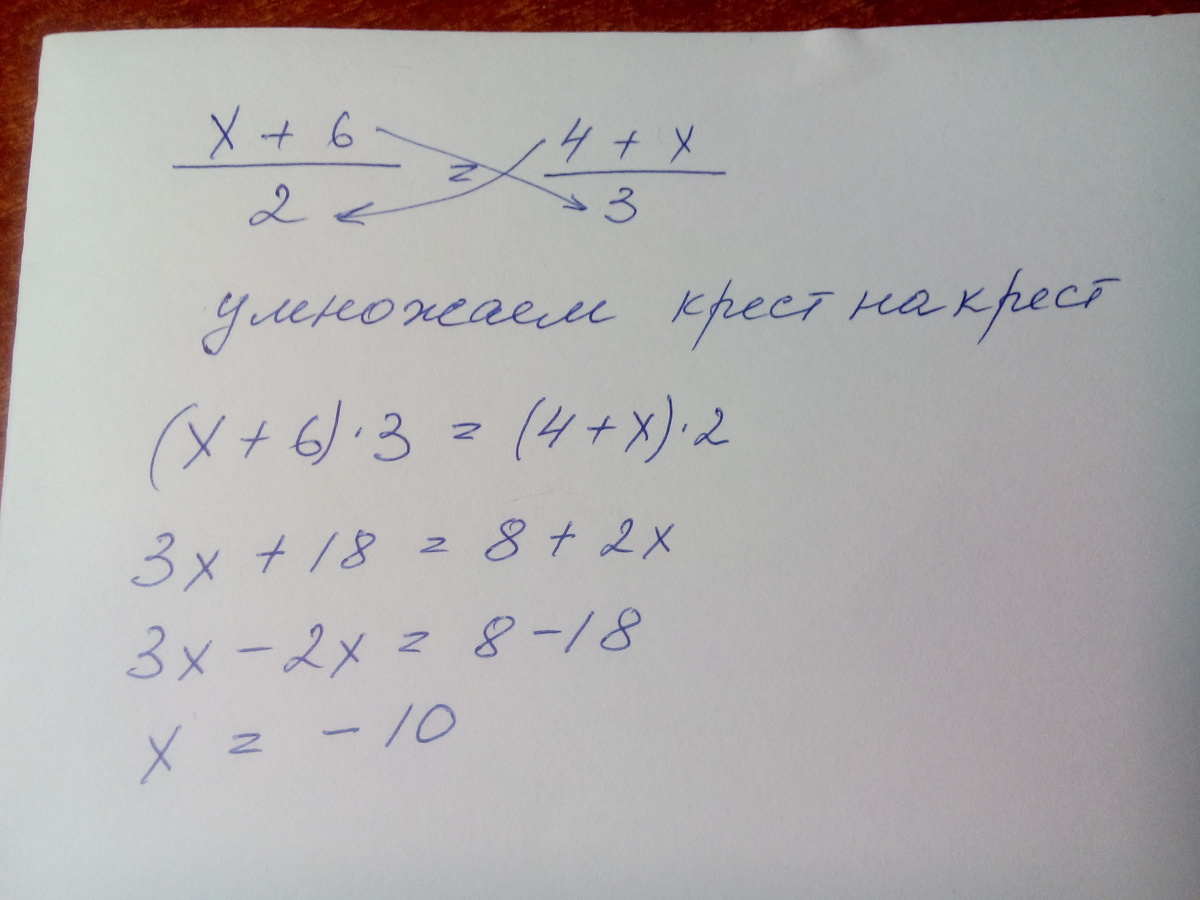 x + 6 = 4 + x
2 3
умножаем крест накрест
(x + 6) · 3 = (4 + x) · 2
3x + 18 = 8 + 2x
3x - 2x = 8 - 18
x = - 10